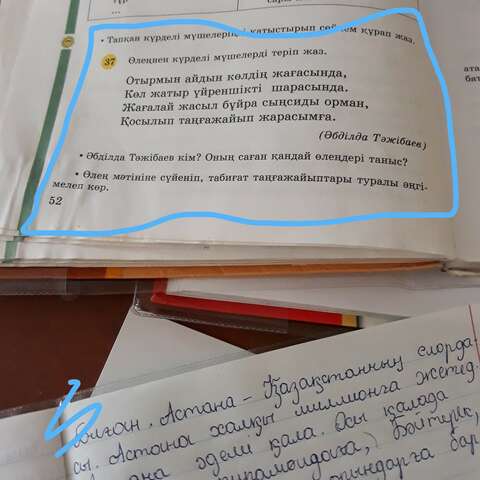 тұр
...
• Тапқан күрделі мүшелерді қатыстырып сөйлем құрап жаз.
37 Өлеңнен күрделі мүшелерді теріп жаз.
Отырмын айдын көлдің жағасында,
Көл жатыр үйреншікті шарасында.
Жағалай жасыл бұйра сыңсиды орман,
Қосылып таңғажайып жарасымға.
(Әбділда Тәжібаев)
• Әбділда Тәжібаев кім? Оның саған қандай өлеңдері таныс?
• Өлең мәтініне сүйеніп, табиғат таңғажайыптары туралы әңгі-
мелеп көр.
52
ата
бат
болған. Астана – Қазақстанның елорда-
сы. Астана халқы миллионға жетед
әдемі қала. Осы қалада
Бәйтерек,
орындарға бар